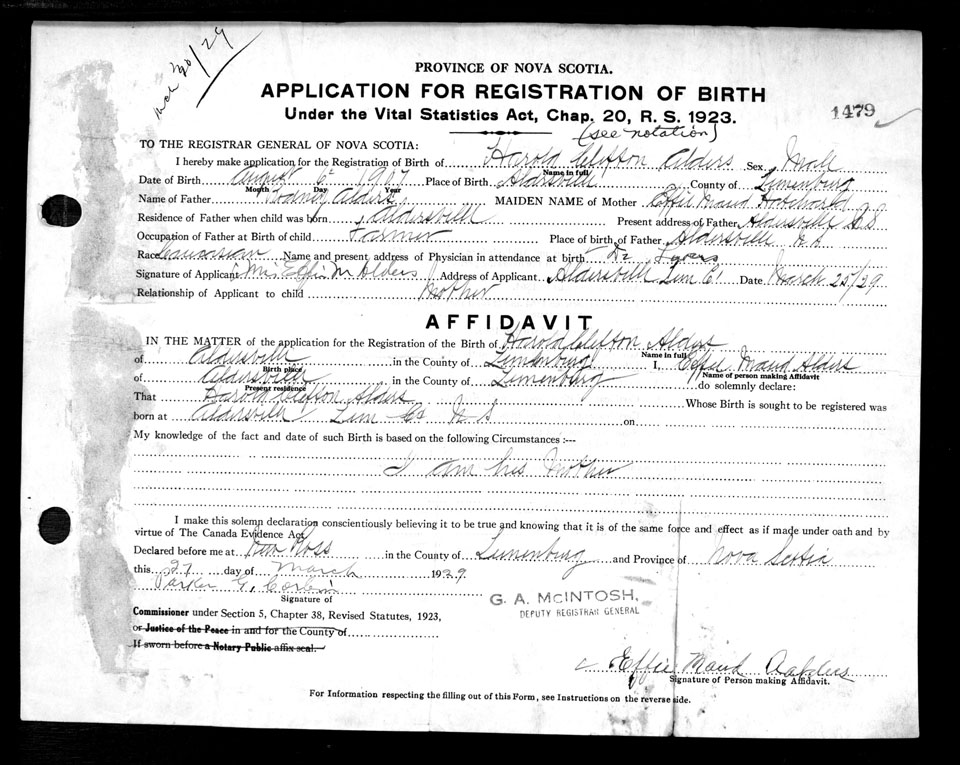 Mch 30/29
PROVINCE OF NOVA SCOTIA.
APPLICATION FOR REGISTRATION OF BIRTH
Under the Vital Statistics Act, Chap. 20, R. S. 1923.
1479
(see notation)
TO THE REGISTRAR GENERAL OF NOVA SCOTIA:
I hereby make application for the Registration of Birth of Harold Clifton Alders Sex Male
Name in full
Date of Birth August 6 1907 Place of Birth Aldersville County of Lunenburg
Month Day Year
Name of Father Alders MAIDEN NAME of Mother Effie Maud
Residence of Father when child was born Aldersville Present address of Father Aldersville N.S
Occupation of Father at Birth of child Farmer Place of birth of Father Aldersville N.S
Race Name and present address of Physician in attendance at birth Dr
Signature of Applicant Mrs Effie M Alders Address of Applicant Aldersville Lun Co Date March 25/29
Relationship of Applicant to child Mother
AFFIDAVIT
IN THE MATTER of the application for the Registration of the Birth of Harold Clifton Alders
Name in full
of Aldersville in the County of Lunenburg I, Effie Maud Alders
Birth place Name of person making Affidavit
of Aldersville in the County of Lunenburg do solemnly declare:
Present residence
That Harold Clifton Alders Whose Birth is sought to be registered was
born at Aldersville Lun Co N S on
My knowledge of the fact and date of such Birth is based on the following Circumstances :—
I am his Mother
I make this solemn declaration conscientiously believing it to be true and knowing that it is of the same force and effect as if made under oath and by
virtue of The Canada Evidence Act.
Declared before me at New Ross in the County of Lunenburg and Province of Nova Scotia
this 27 day of March 1929.
Parker G.
Signature of
G. A. McINTOSH,
DEPUTY REGISTRAR GENERAL
Commissioner under Section 5, Chapter 38, Revised Statutes, 1923,
or Justice of the Peace in and for the County of
If sworn before a Notary Public affix seal.
Effie Maud Aalders
Signature of Person making Affidavit.
For Information respecting the filling out of this Form, see Instructions on the reverse side.